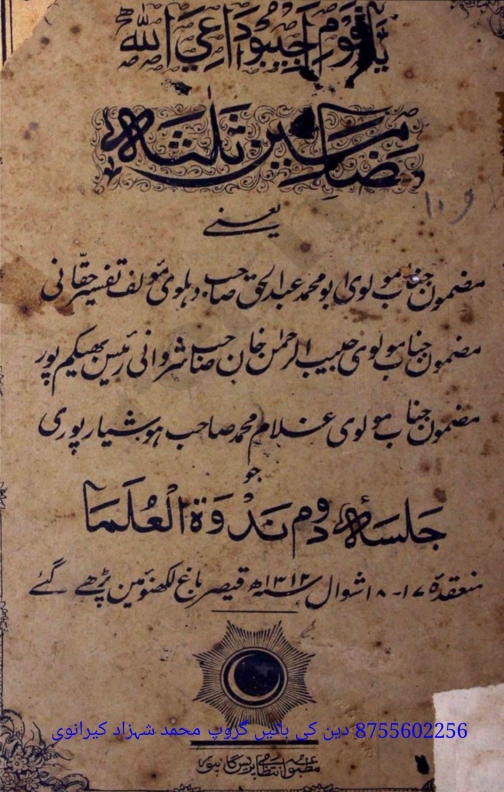 یا قوم اجیبوا داعی اللہ
مضامین ثلثہ
یعنے
مضمون جناب مولوی ابو محمد عبد الحق صاحب دہلوی مؤلف تفسیر حقانی
مضمون جناب مولوی حبیب الرحمٰن خان صاحب شروانی رئیس بھیکم پور
مضمون جناب مولوی غلام محمد صاحب ہوشیارپوری
جو
جلسۂ دوم نَدْوَۃُ الْعُلَمَا
منعقدہ ۱۷-۱۸ شوال سنہ ۱۳۱۲ھ قیصر باغ لکھنؤ مین پڑھے گئے
8755602256 دین کی باتیں گروپ محمد شہزاد کیرانوی
مطبوعہ انتظامی پریس کانپور